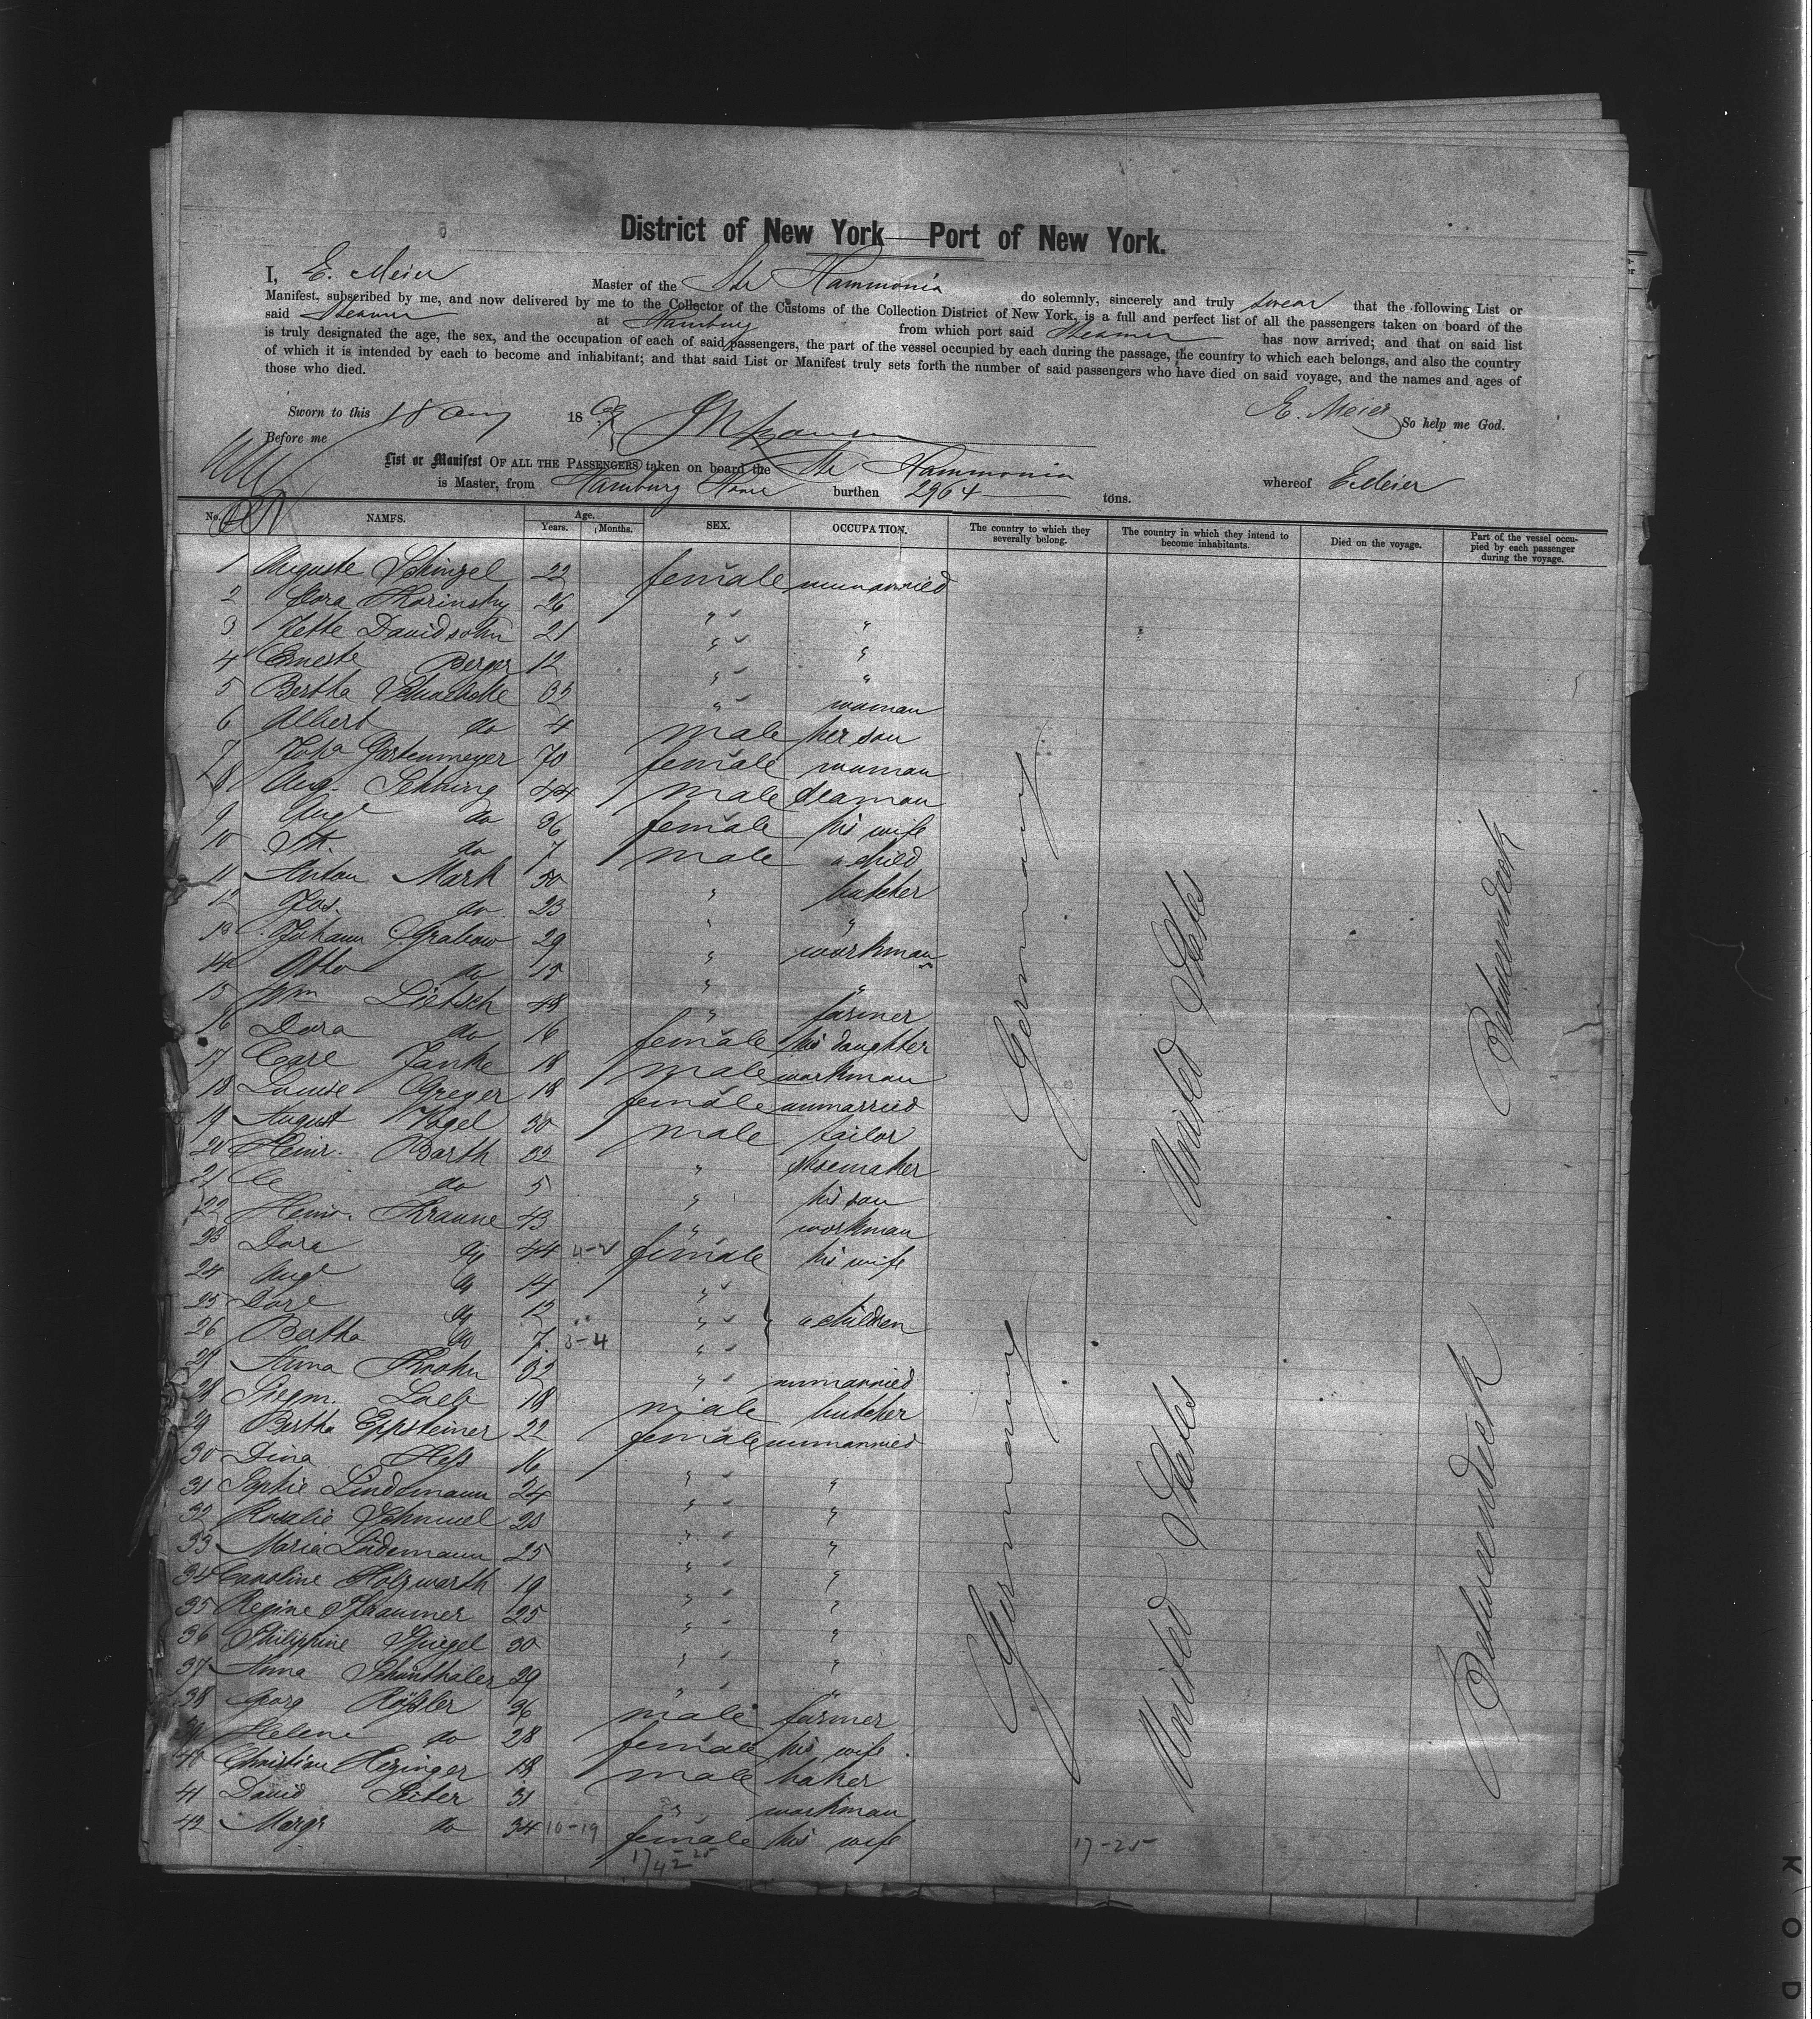 District of New York—Port of New York.
I, E. Meier Master of the Str Hammonia do solemnly, sincerely and truly swear that the following List or
Manifest, subscribed by me, and now delivered by me to the Collector of the Customs of the Collection District of New York, is a full and perfect list of all the passengers taken on board of the
said Steamer at Hamburg from which port said Steamer has now arrived; and that on said list
is truly designated the age, the sex, and the occupation of each of said passengers, the part of the vessel occupied by each during the passage, the country to which each belongs, and also the country
of which it is intended by each to become and inhabitant; and that said List or Manifest truly sets forth the number of said passengers who have died on said voyage, and the names and ages of
those who died.
Sworn to this 18 Aug 18 E. Meier So help me God.
Before me
List or Manifest OF ALL THE PASSENGERS taken on board the Str Hammonia whereof E. Meier
is Master, from Hamburg burthen 2964 tons.
No. NAMES. Age. Years. Months. SEX. OCCUPATION. The country to which they severally belong. The country in which they intend to become inhabitants. Died on the voyage. Part of the vessel occupied by each passenger during the voyage.
1 Auguste Schinzel 22 female unmarried
2 Dora 26 " "
3 Jette Davidsohn 21 " "
4 Erneste Berger 12 " "
5 Bertha 32 " woman
6 Albert do 4 male her son
7 Joha Gartenmeyer 70 female woman
8 Aug. Sehning 44 male seaman
9 Auge do 36 female his wife
10 do 7 male a child
11 Anton Mark 50 " butcher
12 Jos. do 23 " "
13 Johann Grabow 29 " workman
14 Otto do 15 " "
15 Wm Lietsch 48 " farmer
16 Dora do 16 female his daughter
17 Carl Janke 18 male workman
18 Louise Greger 18 female unmarried
19 August Vogel 30 male tailor
20 Heinr. Barth 32 " shoemaker
21 do 5 " his son
22 Heinr. Kraune 43 " workman
23 Dora do 44 female his wife
24 Auge do 14 "
25 do 12 " a children
26 Bertha do 7 3-4 "
27 Anna Krohn 32 " unmarried
28 Siegm. Loeb 18 male butcher
29 Bertha Eppsteiner 22 female unmarried
30 Dina Heß 16 " "
31 Sophie Lindemann 24 " "
32 Rosalie Schmuel 23 " "
33 Maria Lüdemann 25 " "
34 Caroline Holzwarth 19 " "
35 Regine 25 " "
36 Philippine Spiegel 30 " "
37 Anna Schönthaler 29 " "
38 Georg Rößler 36 male farmer
39 Helene do 28 female his wife
40 Christian Hezinger 18 male baker
41 David 31 " workman
42 Margr do 34 10-19 female his wife
17-25
42
17-25
Germany
United States
Betweendeck
Germany
United States
Betweendeck
KOD